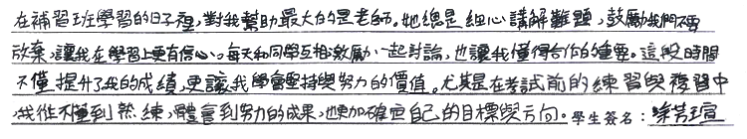 在補習班學習的日子裡,對我幫助最大的是老師。她總是細心講解難題,鼓勵我們不要
放棄,讓我在學習上更有信心。每天和同學互相激勵、一起討論,也讓我懂得合作的重要。這段時間
不僅提升了我的成績,更讓我學會堅持與努力的價值。尤其是在考試前的練習與複習中
,我從不懂到熟練,體會到努力的成果,也更加確定自己的目標與方向。學生簽名:徐芳瑄